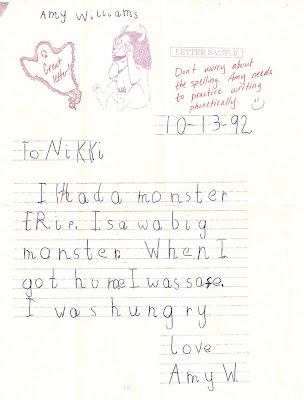 Amy Williams
A
Great
letter!
LETTER SAMPLE
Don't worry about
the spelling. Amy needs
to practice writing
phonetically.
10-13-92
To NiKKi
I Hhad a monster
tRip. I saw a big
monster. When I
got home I was safe.
I was hungry.
love
Amy W.